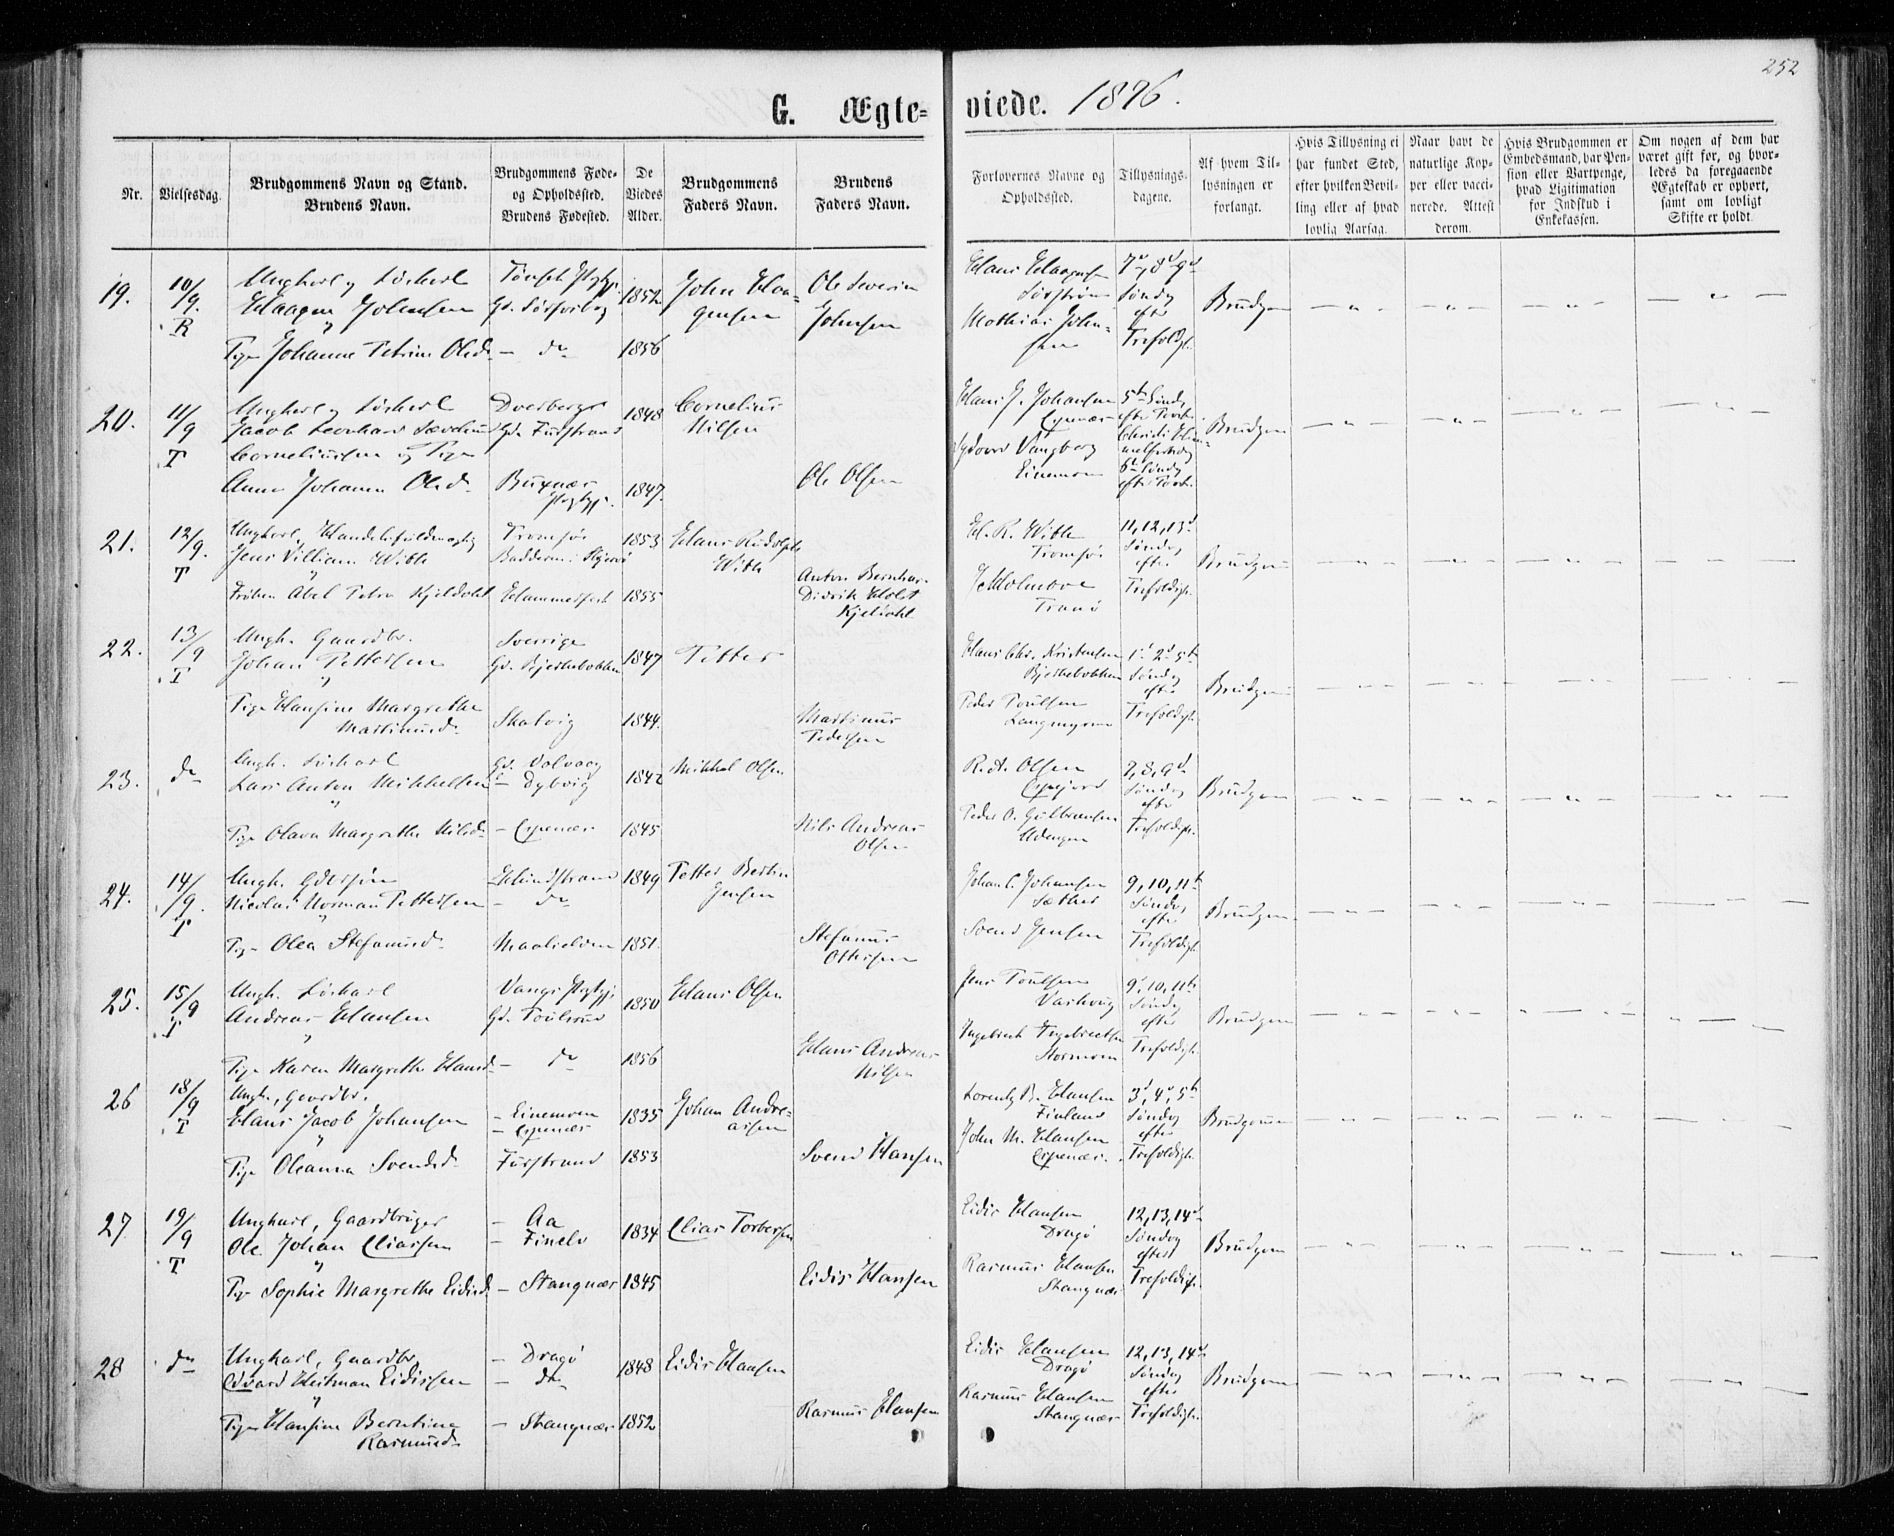 252
G. Ægte- viede. 1876.
Nr.
Vielsesdag.
Brudgommens Navn og Stand.
Brudens Navn.
Brudgommens Føde-
og Opholdssted.
Brudens Fødested.
De
Viedes
Alder.
Brudgommens
Faders Navn.
Brudens
Faders Navn.
Forlovernes Navne og
Opholdssted.
Tillysnings-
dagene.
Af hvem Til-
lysningen er
forlangt.
Hvis Tillysning ei
har fundet Sted,
efter hvilken Bevil-
ling eller af hvad
lovlig Aarsag.
Naar havt de
naturlige Kop-
per eller vacci-
nerede. Attest
derom.
Hvis Brudgommen er
Embedsmand, har Pen-
sion eller Vartpenge,
hvad Ligitimation
for Indskud i
Enkekassen.
Om nogen af dem har
været gift før, og hvor-
ledes da foregaaende
Ægteskab er ophørt,
samt om lovligt
Skifte er holdt.
19.
10/9.
R
Ungkarl, Løskarl
Haagen Johnsen
Pige Johanne Petrine Olsd.
1852
1856
John Haa-
gensen
Ole Severin
Johnsen
Hans Haagensen
Mathias John-
sen
7d, 8d, 9d
Søndag
efter
Trefoldigh.
Brudgom
20.
11/9
T
Ungkarl, Løskarl
Jacob Leonhard
Corneliussen og Pige
Anna Johanna Olsd.
Dverberg
Gd. Furstrand
Buxnæs
Prstgj.
1848
1847.
Cornelius
Nilsen
Ole Olsen
Hans J. Johansen
Espenæs
Vangberg
Einemoen
5te Sønd.
6te Søndag
Brudgom
21.
12/9.
T
Ungkarl, Handelsfuldmægtig
Jens Villiam With
Frøken Abel Petra Kjeldahl
Tromsø
Hammerfest
1853
1855
Hans Rudolph
With
Anton Bernhar
Didrik Holst
Kjeldahl
H. R. With
Tromsø
Tranø
11, 12, 13d
Søndag
efter
Trefoldigh.
Brudgom
22.
13/9
T
Ungk. Gaardbr.
Johan Pettersen
Pige Hansine Margrethe
Martinusd.
Sverrige
Gd. Bjerkebakken
Skatvig
1847
1844.
Petter
Martinus
Pedersen
Hans Chr. Kristensen
Bjerkebakken
Peder Poulsen
Langmyren
Søndag
efter
Trefoldigh.
Brudgom
23.
do
Ungk. Løskarl
Lars Anton Mikkelsen
Pige Olava Margrethe Nilsd.
Gd. Valvaag
- Dybvig
- Espenæs
1842
1845
Mikkel Olsen
Nils Andreas
Olsen
Olsen
Peder O. Gulbransen
7, 8, 9d
Søndag
efter
Trefoldigh.
Brudgom
24.
14/9.
T
Nicolai Norman Pettersen
Pige Olea Stefanusd.
- do
Maalselven
1849
1851.
Petter Bertin
Jensen
Stefanus
Ottesen
Johan C. Johansen
Sæther
Svend Jensen
9, 10, 11te
Søndag
efter
Trefoldigh.
Brudgom
25.
15/9
T
Ungk. Løskarl
Andreas Hansen
Pige Karen Margrethe Hansd.
Vangs Prstgj.
- do
1850
1856
Hans Olsen
Hans Andreas
Nilsen
Jens Poulsen
Ingebrigt Ingebrigtsen
Stormoen
9, 10, 11te
Søndag
efter
Trefoldigh.
Brudgom
26
18/9
T
Ungk., Gaardbr.
Hans Jacob Johansen
Pige Oleanna Svendsd.
- Einemoen
- Espenæs
Furstrand
1835
1853
Johan Andre-
assen
Svend Hansen
Lorentz B. Hansen
Finland
John M. Hansen
Espenæs.
3d, 4d, 5te
Søndag
efter
Trefoldigh.
Brudgommen
27
19/9
T
Ungkarl, Gaardbruger
Ole Johan Eliassen
Pige Sophie Margrethe Eidisd.
- Aa
- Finelv
- Stangnæs
1834
1845
Elias Torbersen
Eidis Hansen
Eidis Hansen
Dragø
Rasmus Hansen
Stangnæs
12, 13, 14de
Søndag
efter
Trefoldigh.
Brudgom
28
do
Ungkarl, Gaardbr.
Edvard Heitman Eidissen
Pige Hansine Berntine
Rasmusd.
- Dragø
- do
- Stangnæs
1848
1852
Eidis Hansen
Rasmus Hansen
Eidis Hansen
Dragø
Rasmus Hansen
Stangnæs
12, 13, 14de
Søndag
efter
Trefoldigh.
Brudgom